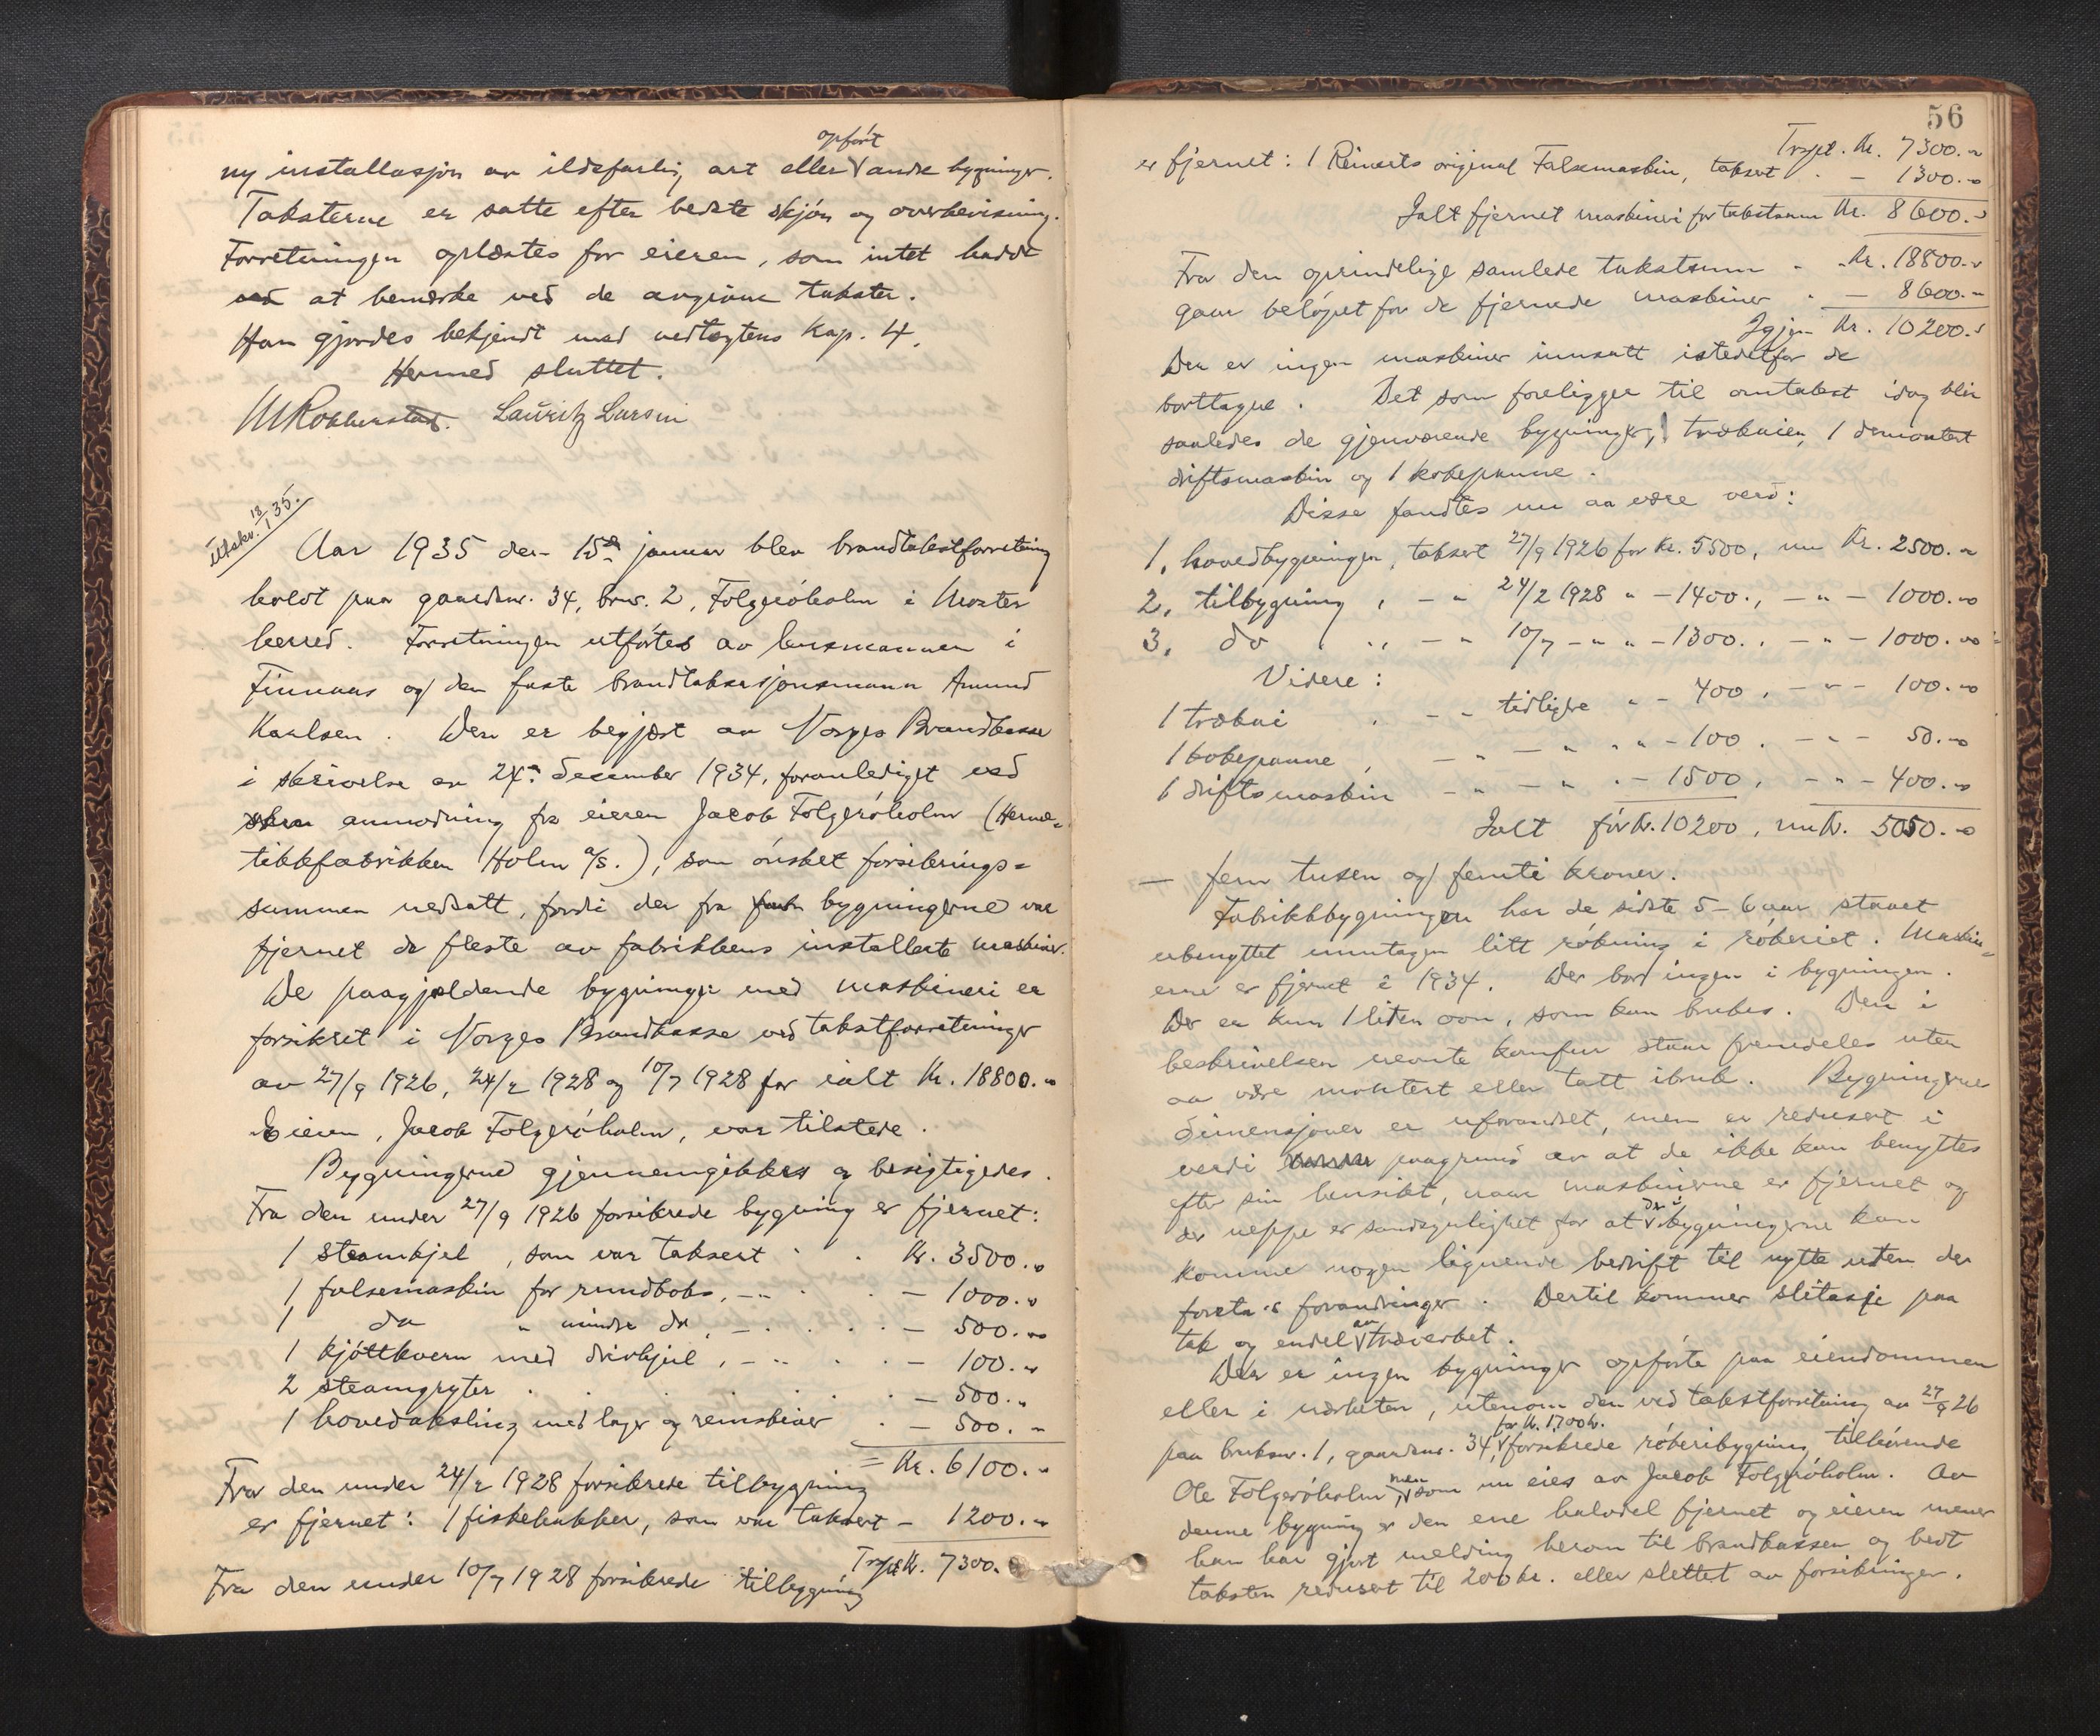 opført
ny installasjon av ildsfarlig art eller V andre bygninger.
Taksterne er satte efter bedste skjøn og overbevisning.
Forretningen oplæstes for eieren, som intet hadde
ved at bemærke ved de avgivne takster.
Han gjordes bekjendt med vedtægtens Kap. 4.
Hermed sluttet.
Lauritz Larsen
Utskr. 18/1 35.
Aar 1935 den 15de januar blev brandtakstforretning
holdt paa gaardsnr. 34, brnr. 2, Folgerøholm i Moster
herred. Forretningen utførtes av lensmannen i
Finnaas og den faste brandtaksasjonsmann Amund
Kaulsen. Den er begjært av Norges Brandkasse
i skrivelse av 24de december 1934, foranlediget ved
anmodning fra eieren Jacob Folgerøholm (Herme-
tikkfabrikken Holm a/s.), som ønsket forsikrings=
summen nedsatt, fordi der fra bygningerne var
fjernet de fleste av fabrikkens installerte maskiner.
De paagjældende bygninger med maskineri er
forsikret i Norges Brandkasse ved takstforretninger
av 27/9 1926, 24/2 1928 og 10/7 1928 for ialt Kr. 18800.-
Eieren, Jacob Folgerøholm, var tilstede.
Bygningerne gjennemgikkes og besigtigedes.
Fra den under 27/9 1926 forsikrede bygning er fjernet:
1 steamkjel, som var taksert . . Kr. 3500.-
1 falsemaskin for rundboks, -"- . . - 1000.-
1 do " mindre do, - . . . . - 500.-
1 kjøttkvern med drivhjul, -"- . . - 100.-
2 steamgryter . . . . . . . - 500.-
1 hovedaksling med lager og remskiver . - 500.-
= Kr. 6100.-
Fra den under 24/2 1928 forsikrede tilbygning
er fjernet: 1 fiskehakker, som var taksert - 1200.-
Trspt Kr. 7300.-
Fra den under 10/7 1928 forsikrede tilbygning
56
Trspt. Kr. 7300.-
er fjernet: 1 Reinerts original Falsemaskin, taksert . - 1300.-
Ialt fjernet maskineri for takstsum Kr. 8600.-
Fra den oprindelige samlede takstsum - . Kr. 18800.-
gaar beløpet for de fjernede maskiner . - 8600.-
Igjen Kr. 10200.-
Der er ingen maskiner innsatt istedetfor de
borttagne. Det som foreligger til omtakst idag blir
saaledes de gjenværende bygninger, 1 trækai, 1 demontert
driftsmaskin og 1 kokepanne.
Disse fandtes nu aa være verd:
1. hovedbygningen, taksert 27/9 1926 for Kr. 5500, nu Kr. 2500.-
2. tilbygning, - " 24/2 1928 " - 1400., - " - 1000.-
3. do ., - " 10/7 - " " - 1300., - " - 1000.-
Videre:
1 trækai . - - tidligere " - 400, - " - 100.-
1 kokepanne, - " - " " - 100. - " - 50.-
1 driftsmaskin - " - " . - 1500, - " - 400.-
Ialt før Kr. 10200, nu Kr. 5050.-
- fem tusen og femti kroner.
Fabrikkbygningen har de sidste 5-6 aar staaet
ubenyttet unntagen litt røkning i røkeriet. Maskin=
erne er fjernet i 1934. Der bor ingen i bygningen.
Der er kun 1 liten ovn, som kan brukes. Den i
beskrivelsen nevnte komfur staar fremdeles uten
aa være montert eller tatt ibruk. Bygningernes
dimensjoner er uforandret, men er redusert i
verdi paagrund av at de ikke kan benyttes
efter sin hensikt, naar maskinerne er fjernet og
der i
der neppe er sandsynlighet for at V bygningerne kan
komme nogen lignende bedrift til nytte uten der
foretaes forandringer. Dertil kommer slitasje paa
av
tak og endel V træverket.
Der er ingen bygninger opførte paa eiendommen
eller i nærheten, utenom den ved takstforretning av 27/9 26
for Kr. 1700 kr.
paa bruksnr. 1, gaardsnr. 34, V forsikrede røkeribygning tilhørende
men
Ole Folgerøholm, V som nu eies av Jacob Folgerøholm. Av
denne bygning er den ene halvdel fjernet og eieren mener
han har gjort melding herom til brandkassen og bedt
taksten redusert til 200 kr. eller slettet av forsikringen.